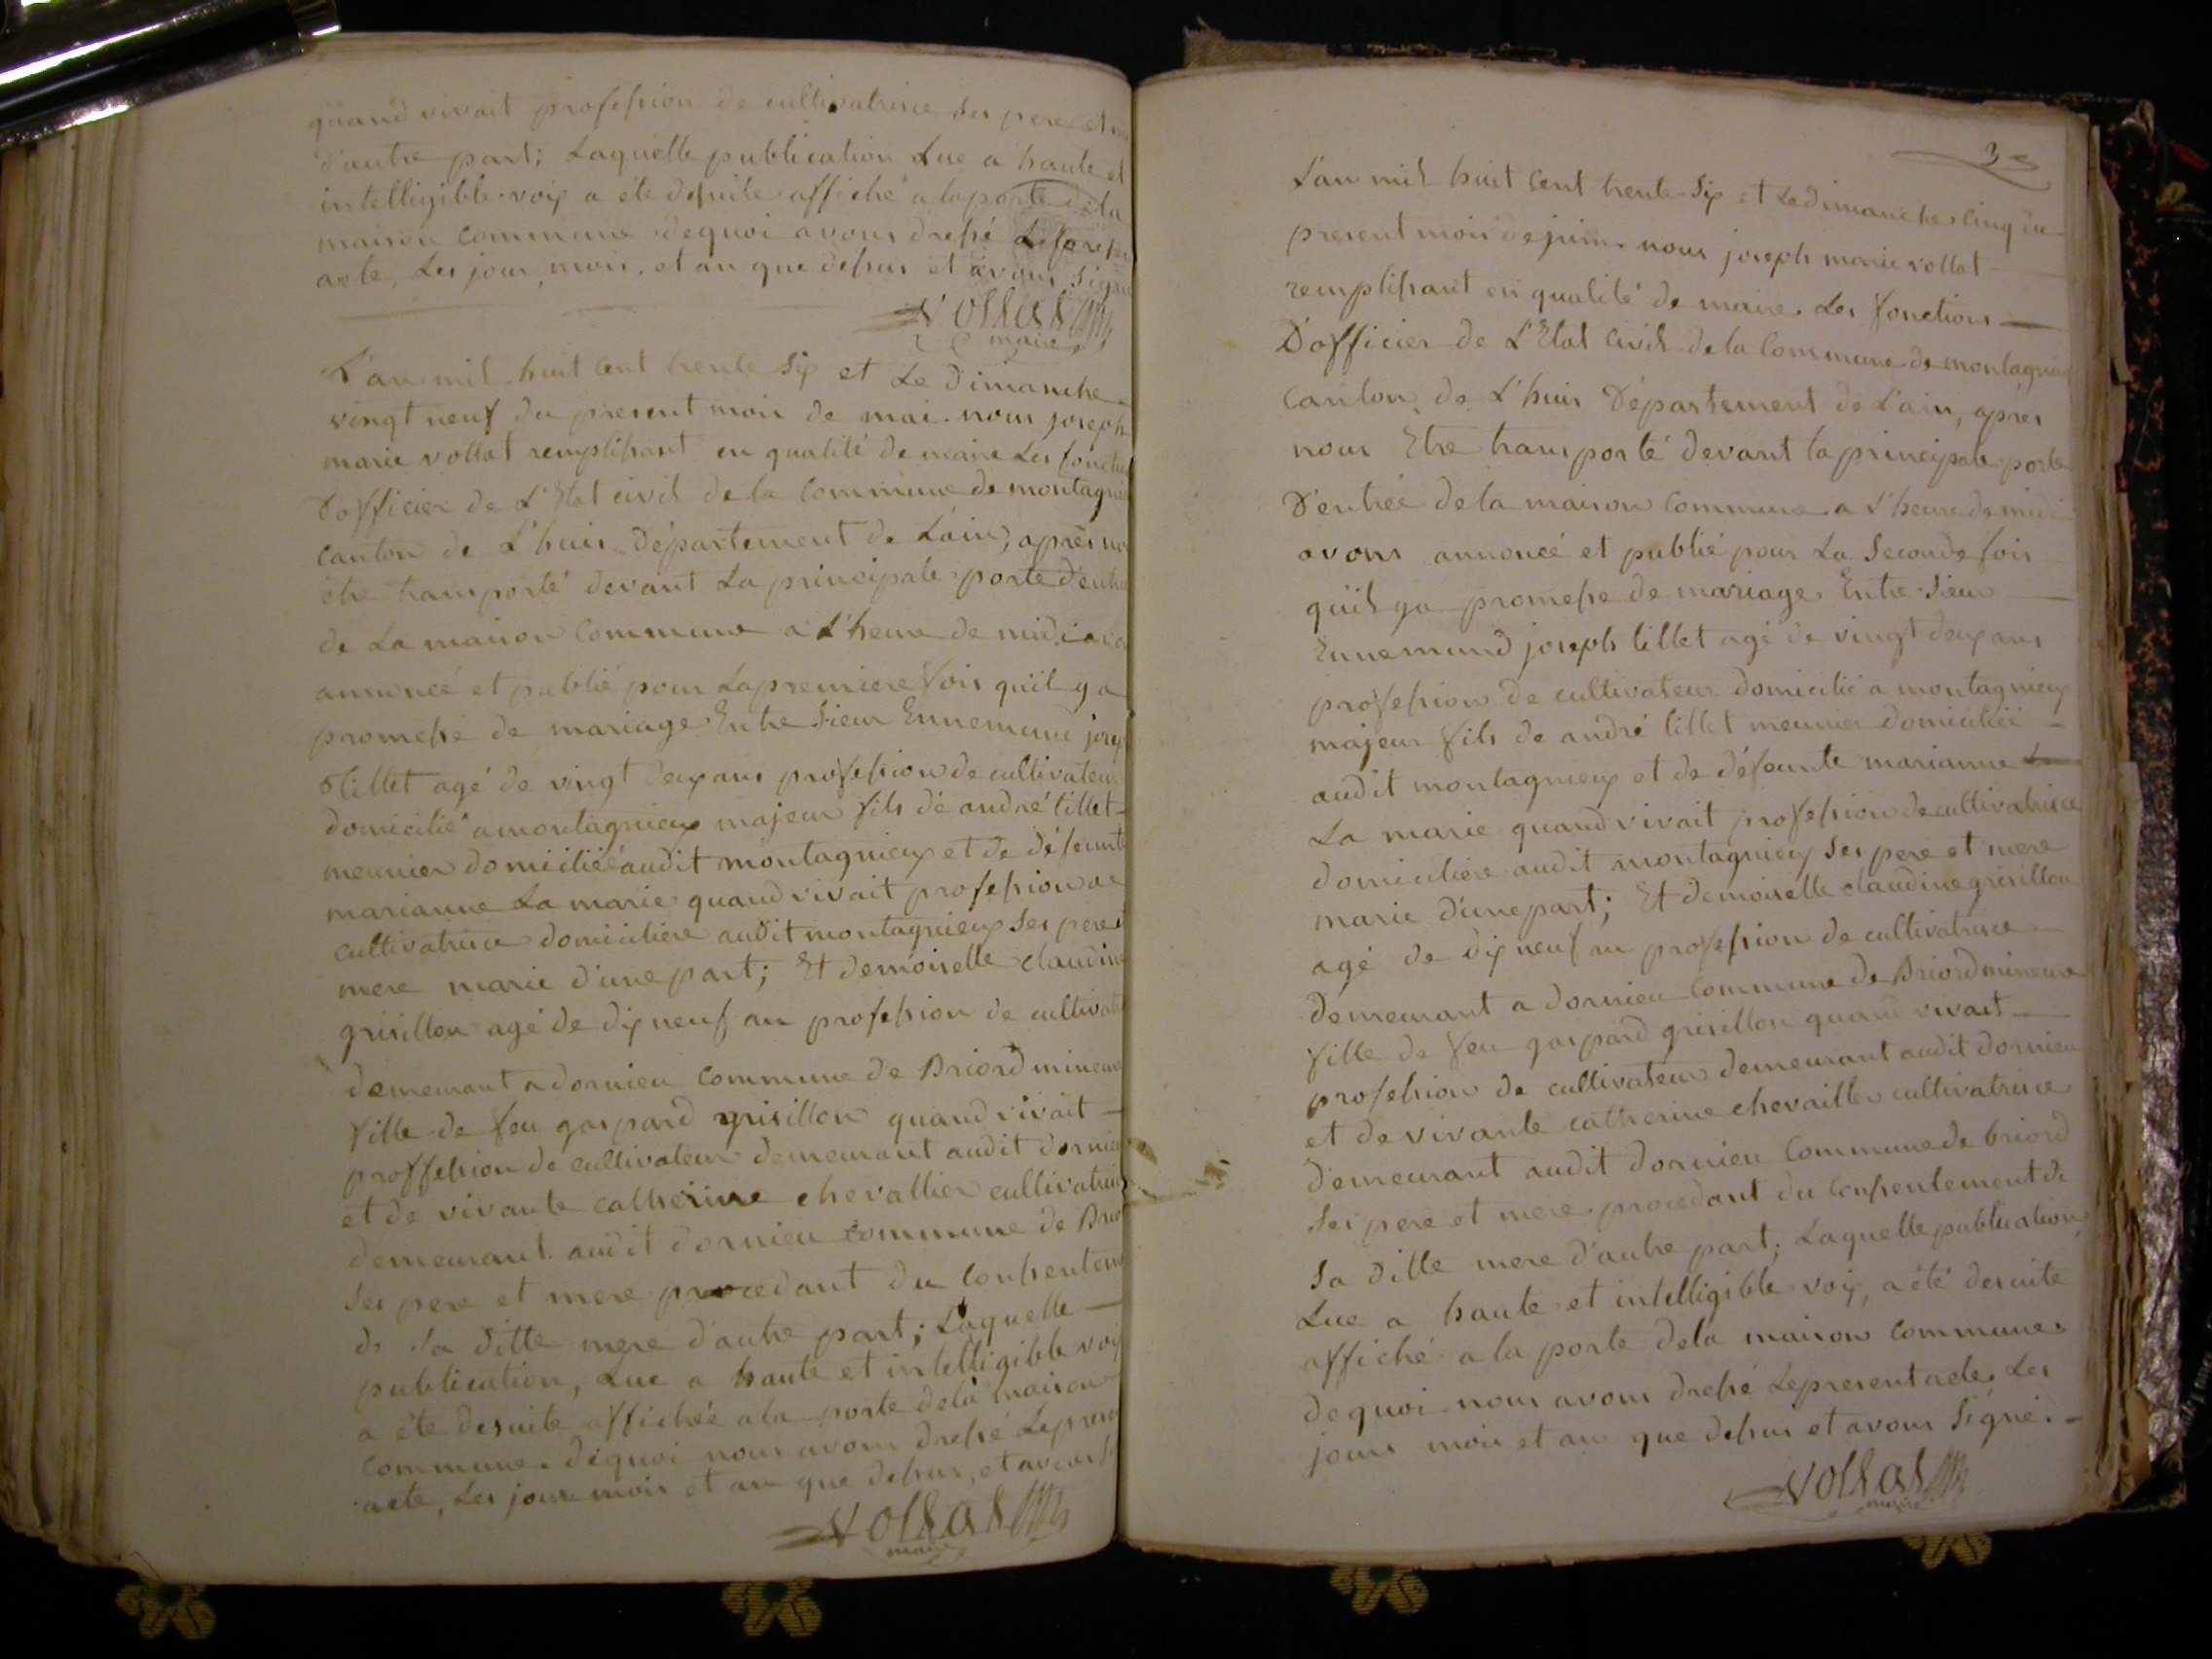 quand vivait profession de cultivatrice ses pere et
d'autre part; Laquelle publication Lue a haute et
intelligible voix a été desuite affiché a la porte de la
maison commune dequoi avons dressé Le
acte, Les jour, mois, et an que dessus et avons signé
vollat
maire
L'an mil huit cent trente six et Le dimanche
vingt neuf du present mois de mai. nous joseph
marie vollat remplissant en qualité de maire Les fonctio
D'officier de L'Etat civil de la Commune de montagni
Canton de L'huis Département de L'ain, après no
être transporté devant La principale porte d'entr
de La maison Commune a L'heure de midi avo
annoncé et publié pour La premiere fois quil y a
promesse de mariage Entre Sieur Ennemund josep
tillet agé de vingt deux ans profession de cultivateur
domicilié a montagnieux majeur fils de andré tillet
meunier domiciliée audit montagnieux et de défeunte
marianne La marie quand vivait profession de
cultivatrice domiciliere audit montagnieux Ses pere
mere marie d'une part; Et demoiselle claudine
grisillon agé de dix neuf an profession de cultivat
demeurant a dornieu commune de Briord mineure
fille de feu gaspard grisillon quand vivait
proffession de cultivateur demeurant audit dornieu
et de vivante catherine chevallier cultivatrice
demeurant audit dornieu commune de Brio
Ses pere et mere procedant du Consentem
de Sa ditte mere d'autre part; Laquelle
publication, Lue a haute et intelligible voix
a été desuite affichée a la porte dela maison
Commune. déquoi nous avons dressé Le presen
acte, Les jour mois et an que dessus, et avons
vollat
maire
3
L'an mil huit Cent trente Six et Le dimanche cinq du
present mois de juin. nous joseph marie vollat
remplissant en qualité de maire Les fonctions
D'officier de L'Etat Civil de la Commune de montagnie
Canton de L'huis Département de L'ain, après
nous Etre transporté devant la principale porte
D'entrée de la maison Commune a L'heure de midi
avons annoncé et publié pour La Seconde fois
quil ya promesse de mariage Entre Sieur
Ennemund joseph tillet agé de vingt deux ans
profession de cultivateur domicilié a montagnieux
majeur fils de andré tillet meunier domiciliée
audit montagnieux et de défeunte marianne
La marie quand vivait profession de cultivatrice
domiciliere audit montagnieux Ses pere et mere
marie d'une part; Et demoiselle claudine grisillon
agé de dix neuf an profession de cultivatrice
demeurant a dornieu Commune de Briord mineure
fille de feu gaspard grisillon quand vivait
profession de cultivateur demeurant audit dornieu
et de vivante catherine chevaillier cultivatrice
demeurant audit dornieu Commune de briord
Ses pere et mere procedant du Consentement de
Sa ditte mere d'autre part; Laquelle publication
Lue a haute et intelligible voix, a été desuite
affiché a la porte dela maison Commune.
déquoi nous avons dressé Le present acte Les
jours mois et an que dessus et avons Signé.
vollat
maire